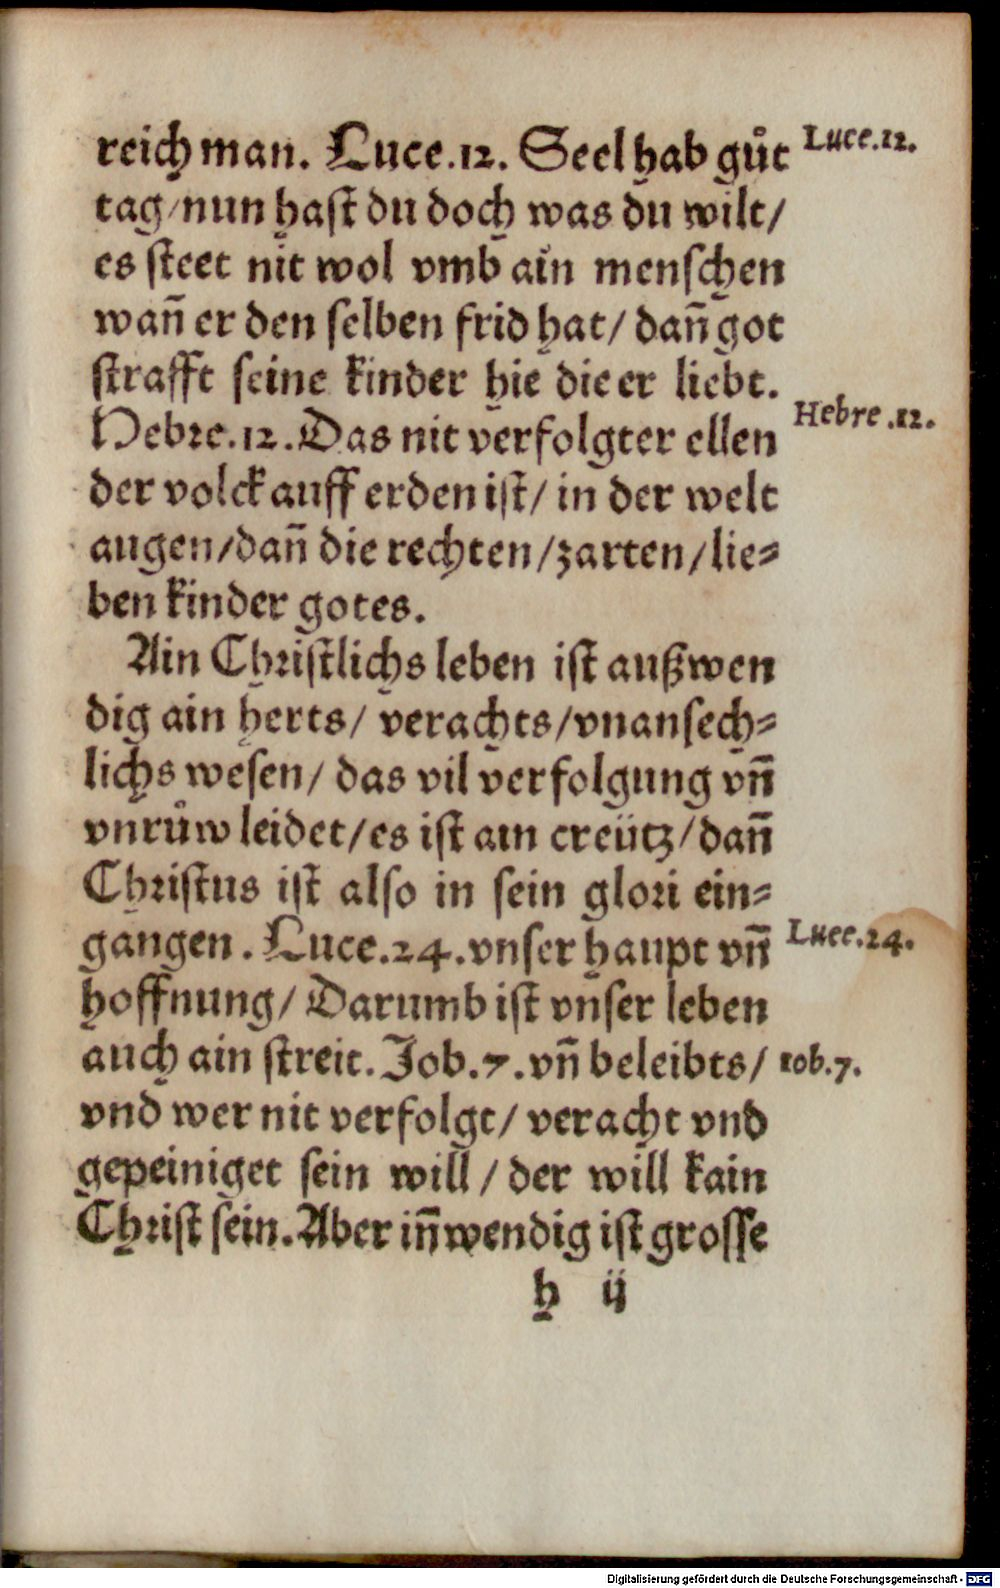 reich man. Luce.12. Seel hab gůt
Luce.12.
tag/nun hast du doch was du wilt/
es steet nit wol vmb ain menschen
wañ er den selben frid hat/ dañ got
strafft seine kinder hie die er liebt.
Hebre.12. Das nit verfolgter ellen
Hebre.12.
der volck auff erden ist/ in der welt
augen/dañ die rechten/zarten/lie-
ben kinder gotes.
Ain Christlichs leben ist außwen
dig ain herts/ verachts/vnansech-
lichs wesen/ das vil verfolgung vñ
vnrůw leidet/es ist ain creütz/dañ
Christus ist also in sein glori ein-
gangen. Luce.24.vnser haupt vñ
Luce.24.
hoffnung/ Darumb ist vnser leben
auch ain streit. Job.7.vñ beleibts/
Iob.7.
vnd wer nit verfolgt/ veracht vnd
gepeiniget sein will/ der will kain
Christ sein. Aber iñwendig ist grosse
h ij
Digitalisierung gefördert durch die Deutsche Forschungsgemeinschaft - DFG